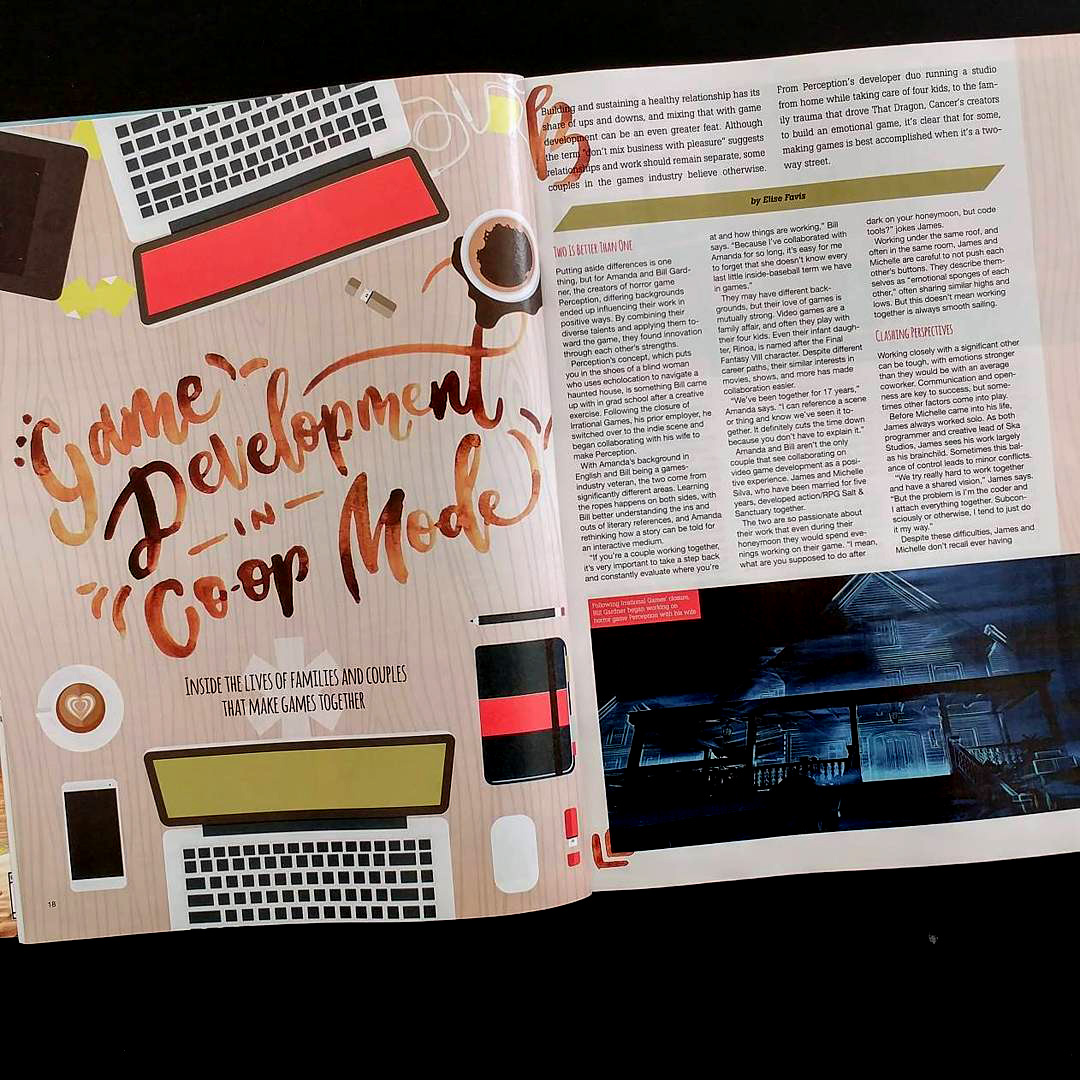 Game
Development
in
Co-op Mode
Inside the lives of families and couples
that make games together
18
B
Building and sustaining a healthy relationship has its
share of ups and downs, and mixing that with game
development can be an even greater feat. Although
the term "don't mix business with pleasure" suggests
relationships and work should remain separate, some
couples in the games industry believe otherwise.
From Perception's developer duo running a studio
from home while taking care of four kids, to the fam-
ily trauma that drove That Dragon, Cancer's creators
to build an emotional game, it's clear that for some,
making games is best accomplished when it's a two-
way street.
by Elise Favis
Two Is Better Than One
Putting aside differences is one
thing, but for Amanda and Bill Gard-
ner, the creators of horror game
Perception, differing backgrounds
ended up influencing their work in
positive ways. By combining their
diverse talents and applying them to-
ward the game, they found innovation
through each other's strengths.
Perception's concept, which puts
you in the shoes of a blind woman
who uses echolocation to navigate a
haunted house, is something Bill came
up with in grad school after a creative
exercise. Following the closure of
Irrational Games, his prior employer, he
switched over to the indie scene and
began collaborating with his wife to
make Perception.
With Amanda's background in
English and Bill being a games-
industry veteran, the two come from
significantly different areas. Learning
the ropes happens on both sides, with
Bill better understanding the ins and
outs of literary references, and Amanda
rethinking how a story can be told for
an interactive medium.
"If you're a couple working together,
it's very important to take a step back
and constantly evaluate where you're
at and how things are working," Bill
says. "Because I've collaborated with
Amanda for so long, it's easy for me
to forget that she doesn't know every
last little inside-baseball term we have
in games."
They may have different back-
grounds, but their love of games is
mutually strong. Video games are a
family affair, and often they play with
their four kids. Even their infant daugh-
ter, Rinoa, is named after the Final
Fantasy VIII character. Despite different
career paths, their similar interests in
movies, shows, and more has made
collaboration easier.
"We've been together for 17 years,"
Amanda says. "I can reference a scene
or thing and know we've seen it to-
gether. It definitely cuts the time down
because you don't have to explain it."
Amanda and Bill aren't the only
couple that see collaborating on
video game development as a posi-
tive experience. James and Michelle
Silva, who have been married for five
years, developed action/RPG Salt &
Sanctuary together.
The two are so passionate about
their work that even during their
honeymoon they would spend eve-
nings working on their game. "I mean,
what are you supposed to do after
dark on your honeymoon, but code
tools?" jokes James.
Working under the same roof, and
often in the same room, James and
Michelle are careful to not push each
other's buttons. They describe them-
selves as "emotional sponges of each
other," often sharing similar highs and
lows. But this doesn't mean working
together is always smooth sailing.
Clashing Perspectives
Working closely with a significant other
can be tough, with emotions stronger
than they would be with an average
coworker. Communication and open-
ness are key to success, but some-
times other factors come into play.
Before Michelle came into his life,
James always worked solo. As both
programmer and creative lead of Ska
Studios, James sees his work largely
as his brainchild. Sometimes this bal-
ance of control leads to minor conflicts.
"We try really hard to work together
and have a shared vision," James says.
"But the problem is I'm the coder and
I attach everything together. Subcon-
sciously or otherwise, I tend to just do
it my way."
Despite these difficulties, James and
Michelle don't recall ever having
Following Irrational Games' closure,
Bill Gardner began working on
horror game Perception with his wife